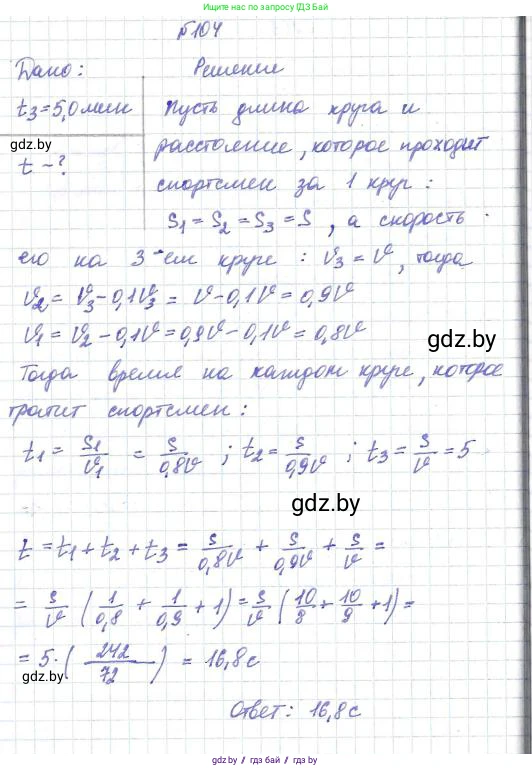 Ищите нас по запросу (ГДЗ.БАЙ)
№104
Дано: Решение
t₃=5,0 мин Пусть длина круга и
gdz.by расстояние, которое проходит
t - ? спортсмен за 1 круг:
S₁ = S₂ = S₃ = S, а скорость
его на 3-ем круге: ϑ₃ = ϑ, тогда
ϑ₂ = ϑ₃ - 0,1ϑ₃ = ϑ - 0,1ϑ = 0,9ϑ
ϑ₁ = ϑ₂ - 0,1ϑ = 0,9ϑ - 0,1ϑ = 0,8ϑ
gdz.by
Тогда время на каждом круге, которое
тратит спортсмен:
t₁ = S₁/ϑ₁ = S/0,8ϑ ; t₂ = S/0,9ϑ ; t₃ = S/ϑ = 5
gdz.by
t = t₁ + t₂ + t₃ = S/0,8ϑ + S/0,9ϑ + S/ϑ =
= S/ϑ (1/0,8 + 1/0,9 + 1) = S/ϑ (10/8 + 10/9 + 1) =
= 5·(242/72) = 16,8 с
gdz.by
Ответ: 16,8 с
gdz.by / гдз бай / gdz by